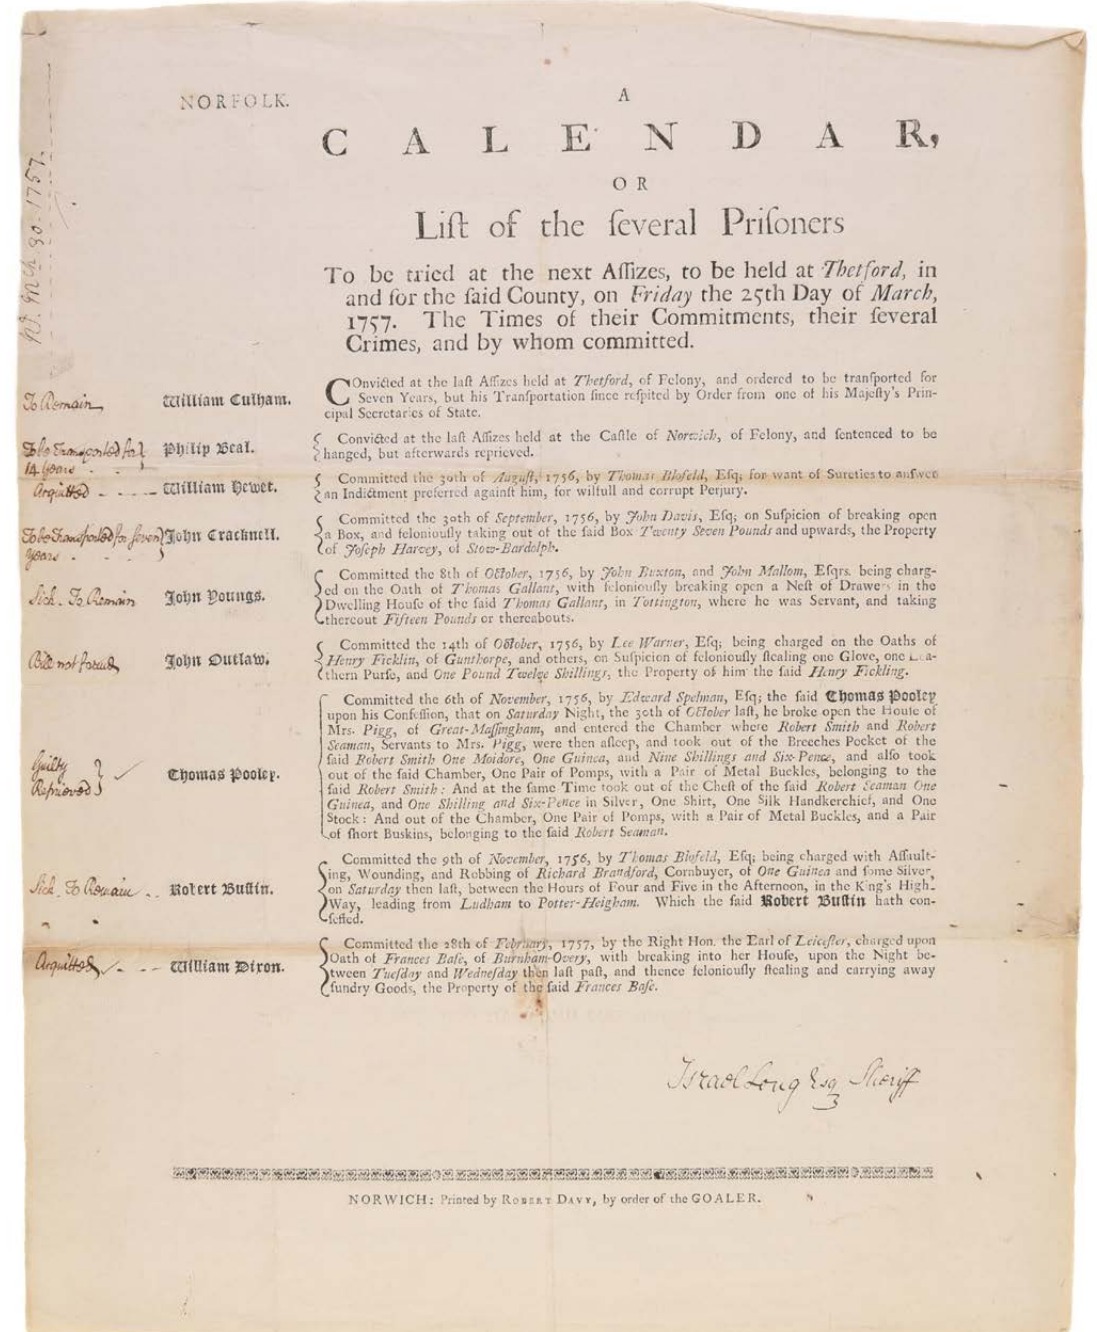 NORFOLK.
A
CALENDAR,
OR
Liſt of the ſeveral Priſoners
To be tried at the next Aſſizes, to be held at Thetford, in
and for the ſaid County, on Friday the 25th Day of March,
1757. The Times of their Commitments, their ſeveral
Crimes, and by whom committed.
Mch 30. 1757.
To Remain
William Culham.
COnvicted at the laſt Aſſizes held at Thetford, of Felony, and ordered to be tranſported for
Seven Years, but his Tranſportation ſince reſpited by Order from one of his Majeſty's Prin-
cipal Secretaries of State.
To be Transported for
14 years
Philip Beal.
Convicted at the laſt Aſſizes held at the Caſtle of Norwich, of Felony, and ſentenced to be
hanged, but afterwards reprieved.
Acquitted
William Hewet.
Committed the 30th of Auguſt, 1756, by Thomas Blofeld, Eſq; for want of Sureties to anſwer
an Indictment preferred againſt him, for wilfull and corrupt Perjury.
To be Transported for seven
years
John Cracknell.
Committed the 30th of September, 1756, by John Davis, Eſq; on Suſpicion of breaking open
a Box, and feloniouſly taking out of the ſaid Box Twenty Seven Pounds and upwards, the Property
of Joſeph Harvey, of Stow-Bardolph.
Sick. To Remain
John Youngs.
Committed the 8th of October, 1756, by John Buxton, and John Mallom, Eſqrs. being charg-
ed on the Oath of Thomas Gallant, with feloniouſly breaking open a Neſt of Drawers in the
Dwelling Houſe of the ſaid Thomas Gallant, in Tottington, where he was Servant, and taking
thereout Fifteen Pounds or thereabouts.
Bill not found
John Outlaw.
Committed the 14th of October, 1756, by Lee Warner, Eſq; being charged on the Oaths of
Henry Ficklin, of Gunthorpe, and others, on Suſpicion of feloniouſly ſtealing one Glove, one Lea-
thern Purſe, and One Pound Twelve Shillings, the Property of him the ſaid Henry Fickling.
Guilty
Reprieved
Thomas Pooley.
Committed the 6th of November, 1756, by Edward Spelman, Eſq; the ſaid Thomas Pooley
upon his Confeſſion, that on Saturday Night, the 30th of October laſt, he broke open the Houſe of
Mrs. Pigg, of Great-Maſſingham, and entered the Chamber where Robert Smith and Robert
Seaman, Servants to Mrs. Pigg, were then aſleep, and took out of the Breeches Pocket of the
ſaid Robert Smith One Moidore, One Guinea, and Nine Shillings and Six-Pence, and alſo took
out of the ſaid Chamber, One Pair of Pomps, with a Pair of Metal Buckles, belonging to the
ſaid Robert Smith: And at the ſame Time took out of the Cheſt of the ſaid Robert Seaman One
Guinea, and One Shilling and Six-Pence in Silver, One Shirt, One Silk Handkerchief, and One
Stock: And out of the Chamber, One Pair of Pomps, with a Pair of Metal Buckles, and a Pair
of ſhort Buskins, belonging to the ſaid Robert Seaman.
Sick. To Remain
Robert Buſtin.
Committed the 9th of November, 1756, by Thomas Blofeld, Eſq; being charged with Aſſault-
ing, Wounding, and Robbing of Richard Brandford, Cornbuyer, of One Guinea and ſome Silver,
on Saturday then laſt, between the Hours of Four and Five in the Afternoon, in the King's High-
Way, leading from Ludham to Potter-Heigham. Which the ſaid Robert Buſtin hath con-
feſſed.
Acquitted
William Dixon.
Committed the 28th of February, 1757, by the Right Hon. the Earl of Leiceſter, charged upon
Oath of Frances Baſe, of Burnham-Overy, with breaking into her Houſe, upon the Night be-
tween Tueſday and Wedneſday then laſt paſt, and thence feloniouſly ſtealing and carrying away
ſundry Goods, the Property of the ſaid Frances Baſe.
Israel Long Esq Sheriff
NORWICH: Printed by ROBERT DAVY, by order of the GOALER.